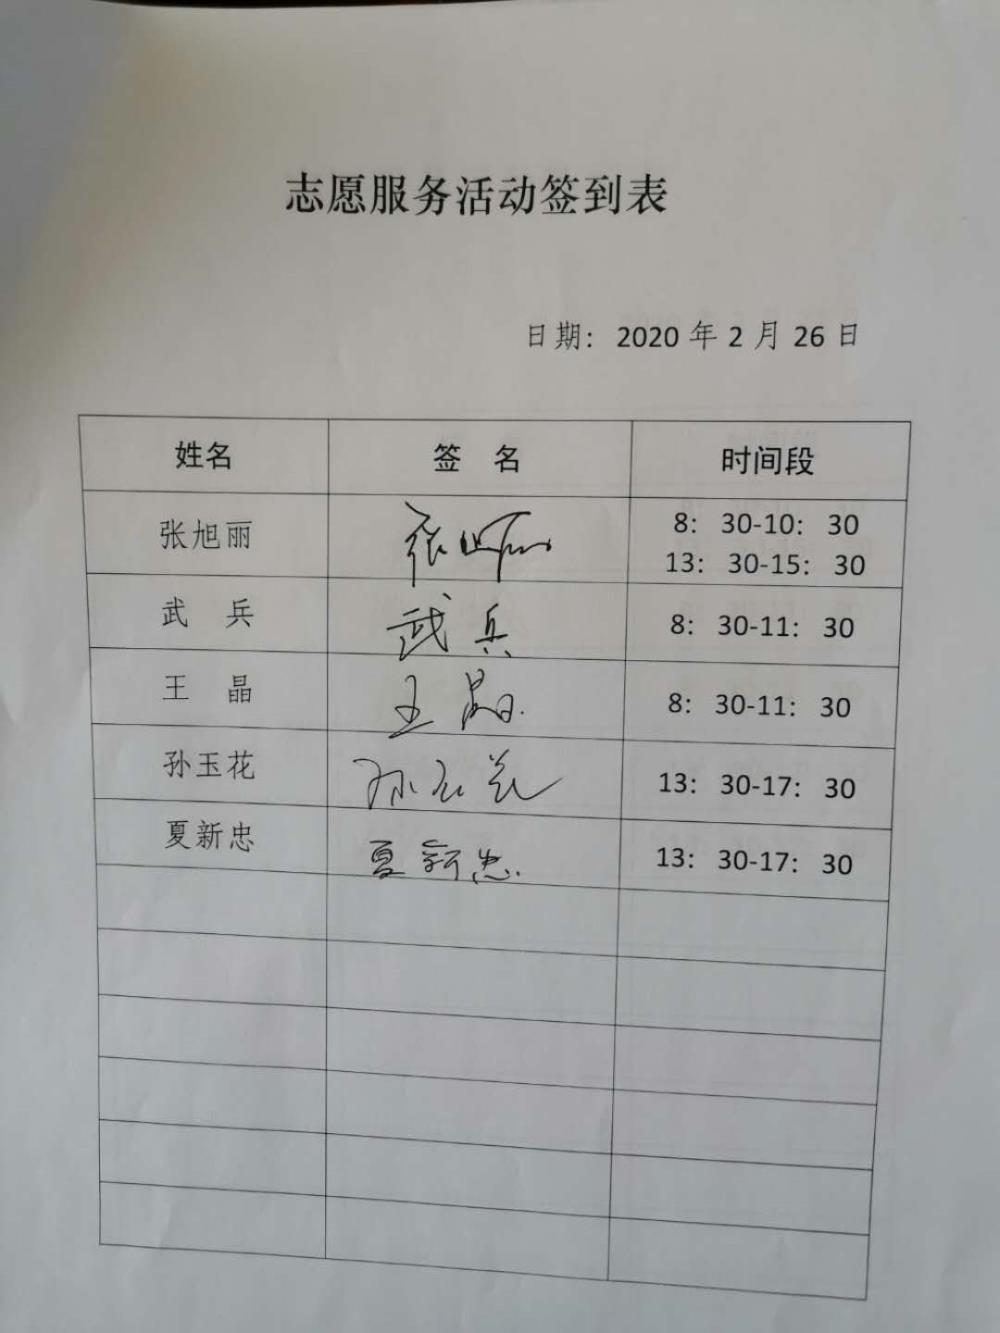 志愿服务活动签到表
日期：2020年2月26日
姓名 签 名 时间段
张旭丽 张旭丽 8：30-10：30
13：30-15：30
武 兵 武兵 8：30-11：30
王 晶 王晶 8：30-11：30
孙玉花 孙玉花 13：30-17：30
夏新忠 夏新忠 13：30-17：30